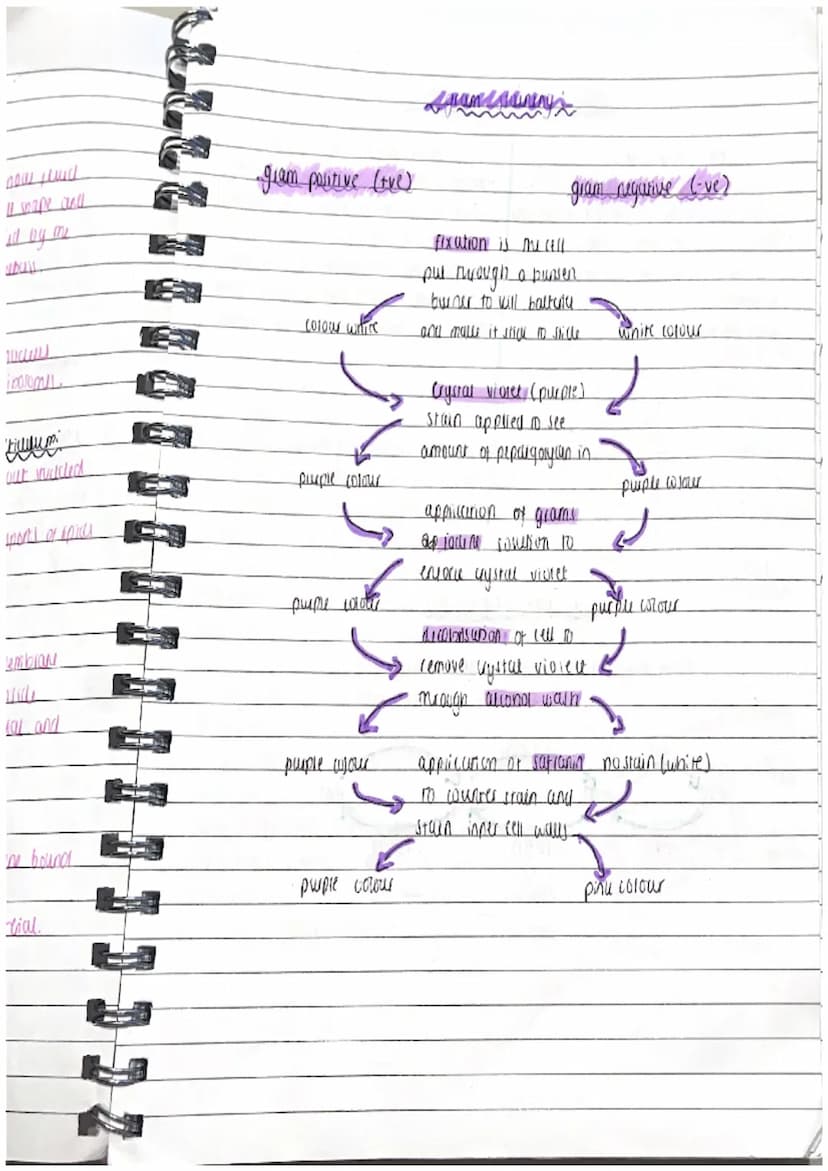 gram staining:
gram positive (+ve)
gram negative (-ve)
fixation is the cell
put through a bunsen
burner to kill bacteria
and make it stick to slide
colour white
white colour
crystal violet (purple)
stain applied to see
amount of in
purple colour
purple colour
application of grams
iodine solution to
crystal violet
purple colour
purple colour
of cell to
remove crystal violet
through alcohol wash
purple colour
no stain (white)
application of safranin
to counter stain and
stain inner cell walls
purple colour
pink colour
shape and
ed by the
nucleus
out
and
bound